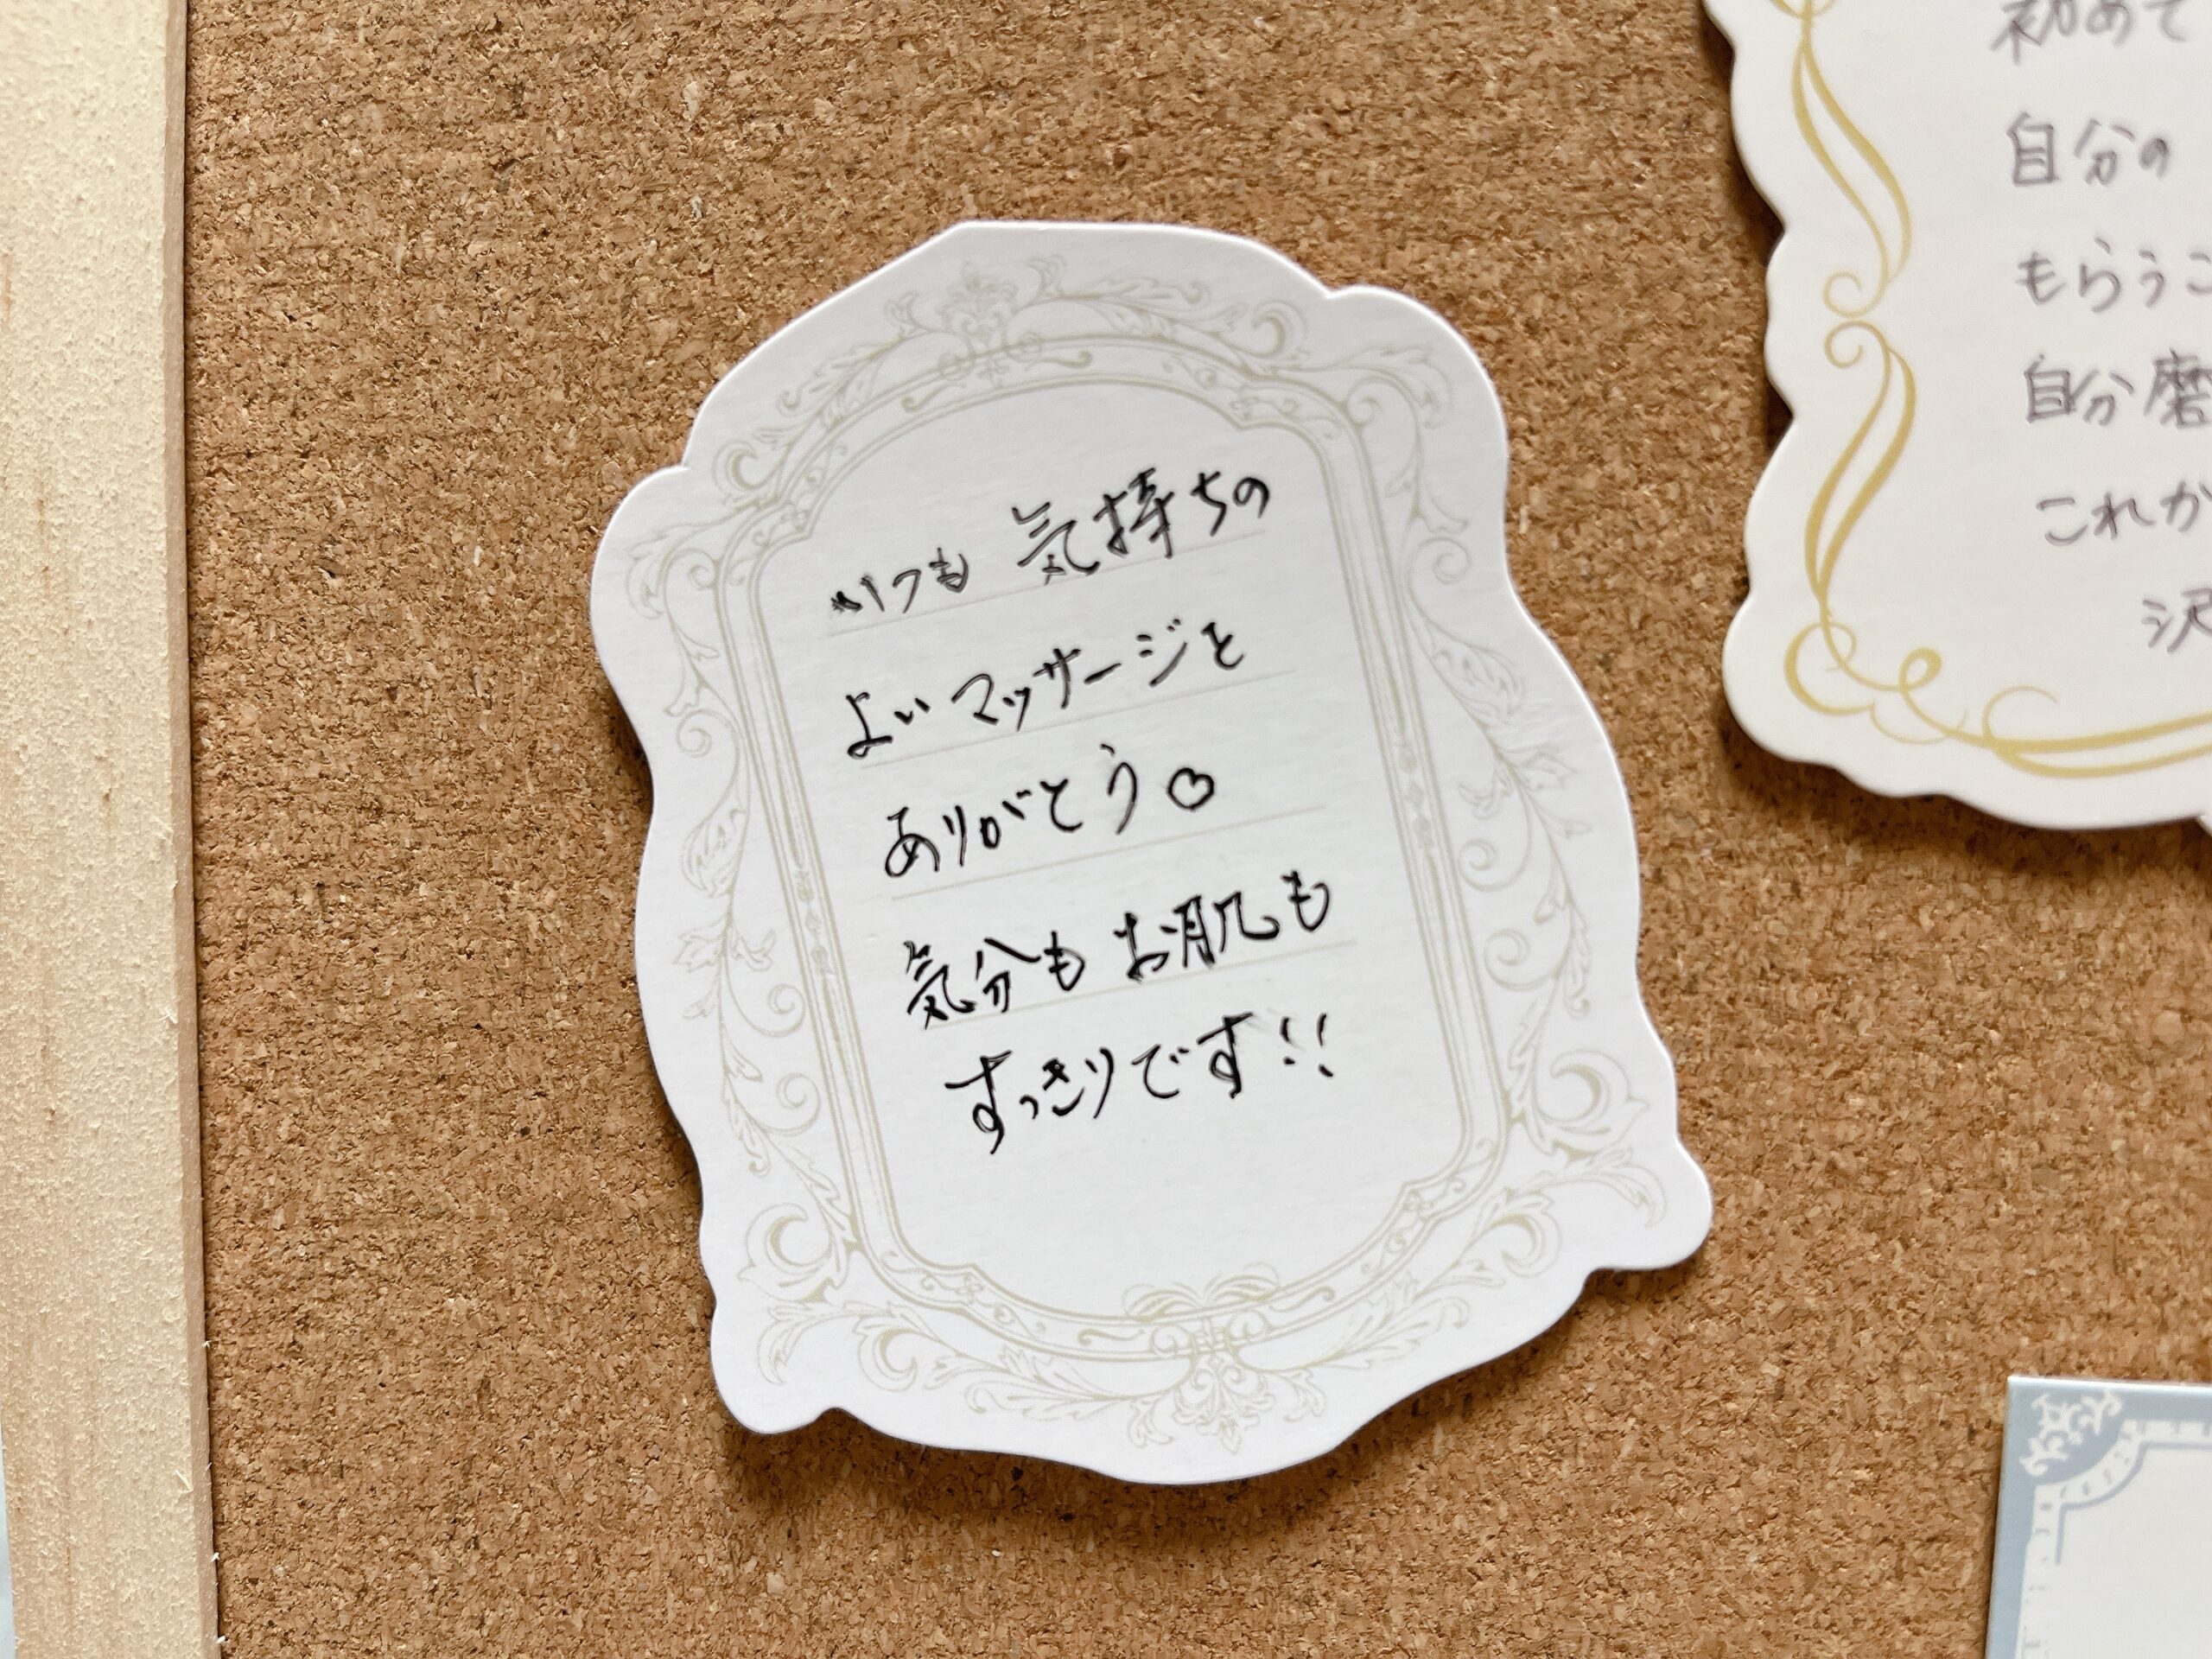 いつも 気持ちの
よいマッサージを
ありがとう♡
気分も お肌も
すっきりです!!
初めて
自分の
もらうこ
自分磨
これか
沢